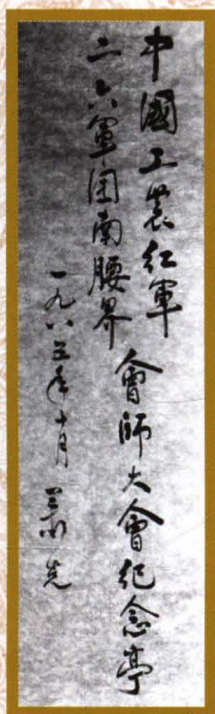 中國工農红軍
二六軍团南腰界
會師大會纪念亭
一九八五年十月 萧克